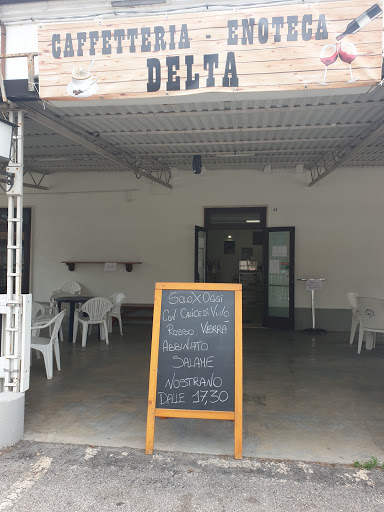 CAFFETTERIA - ENOTECA
DELTA
SOLO X OGGI
CON CALICE DI VINO
ROSSO VERRÀ
ABBINATO
SALAME
NOSTRANO
DALLE 17,30